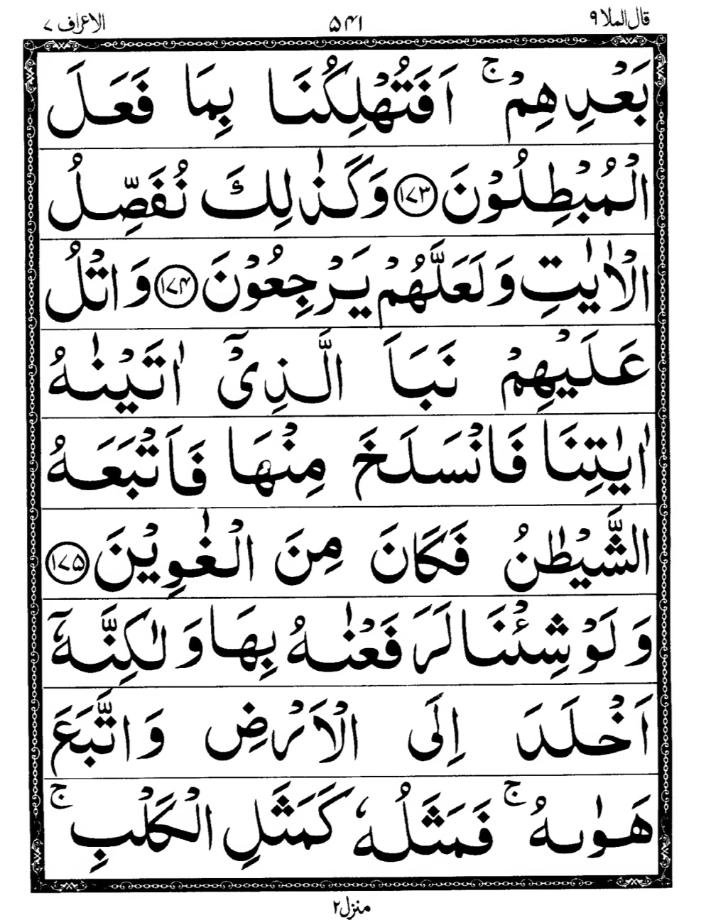 قال الملا ۹ ۵۴۱ الاعراف ۷
بَعْدِهِمْ ۚ اَفَتُهْلِكُنَا بِمَا فَعَلَ
الْمُبْطِلُوْنَ ﴿۱۷۳﴾ وَكَذٰلِكَ نُفَصِّلُ
الْاٰيٰتِ وَلَعَلَّهُمْ يَرْجِعُوْنَ ﴿۱۷۴﴾ وَاتْلُ
عَلَيْهِمْ نَبَاَ الَّذِىْٓ اٰتَيْنٰهُ
اٰيٰتِنَا فَانْسَلَخَ مِنْهَا فَاَتْبَعَهُ
الشَّيْطٰنُ فَكَانَ مِنَ الْغٰوِيْنَ ﴿۱۷۵﴾
وَلَوْ شِئْنَا لَرَفَعْنٰهُ بِهَا وَلٰكِنَّهٗٓ
اَخْلَدَ اِلَى الْاَرْضِ وَاتَّبَعَ
هَوٰىهُ ۚ فَمَثَلُهٗ كَمَثَلِ الْكَلْبِ ۚ
منزل ۲